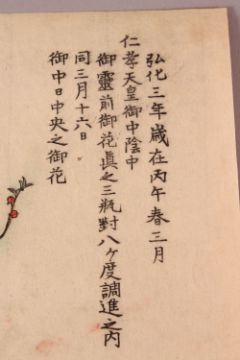 弘化三年歳在丙午春三月
仁孝天皇御中陰中
御靈前御花眞之三瓶對八ケ度調進之内
同三月十六日
御中日中央之御花